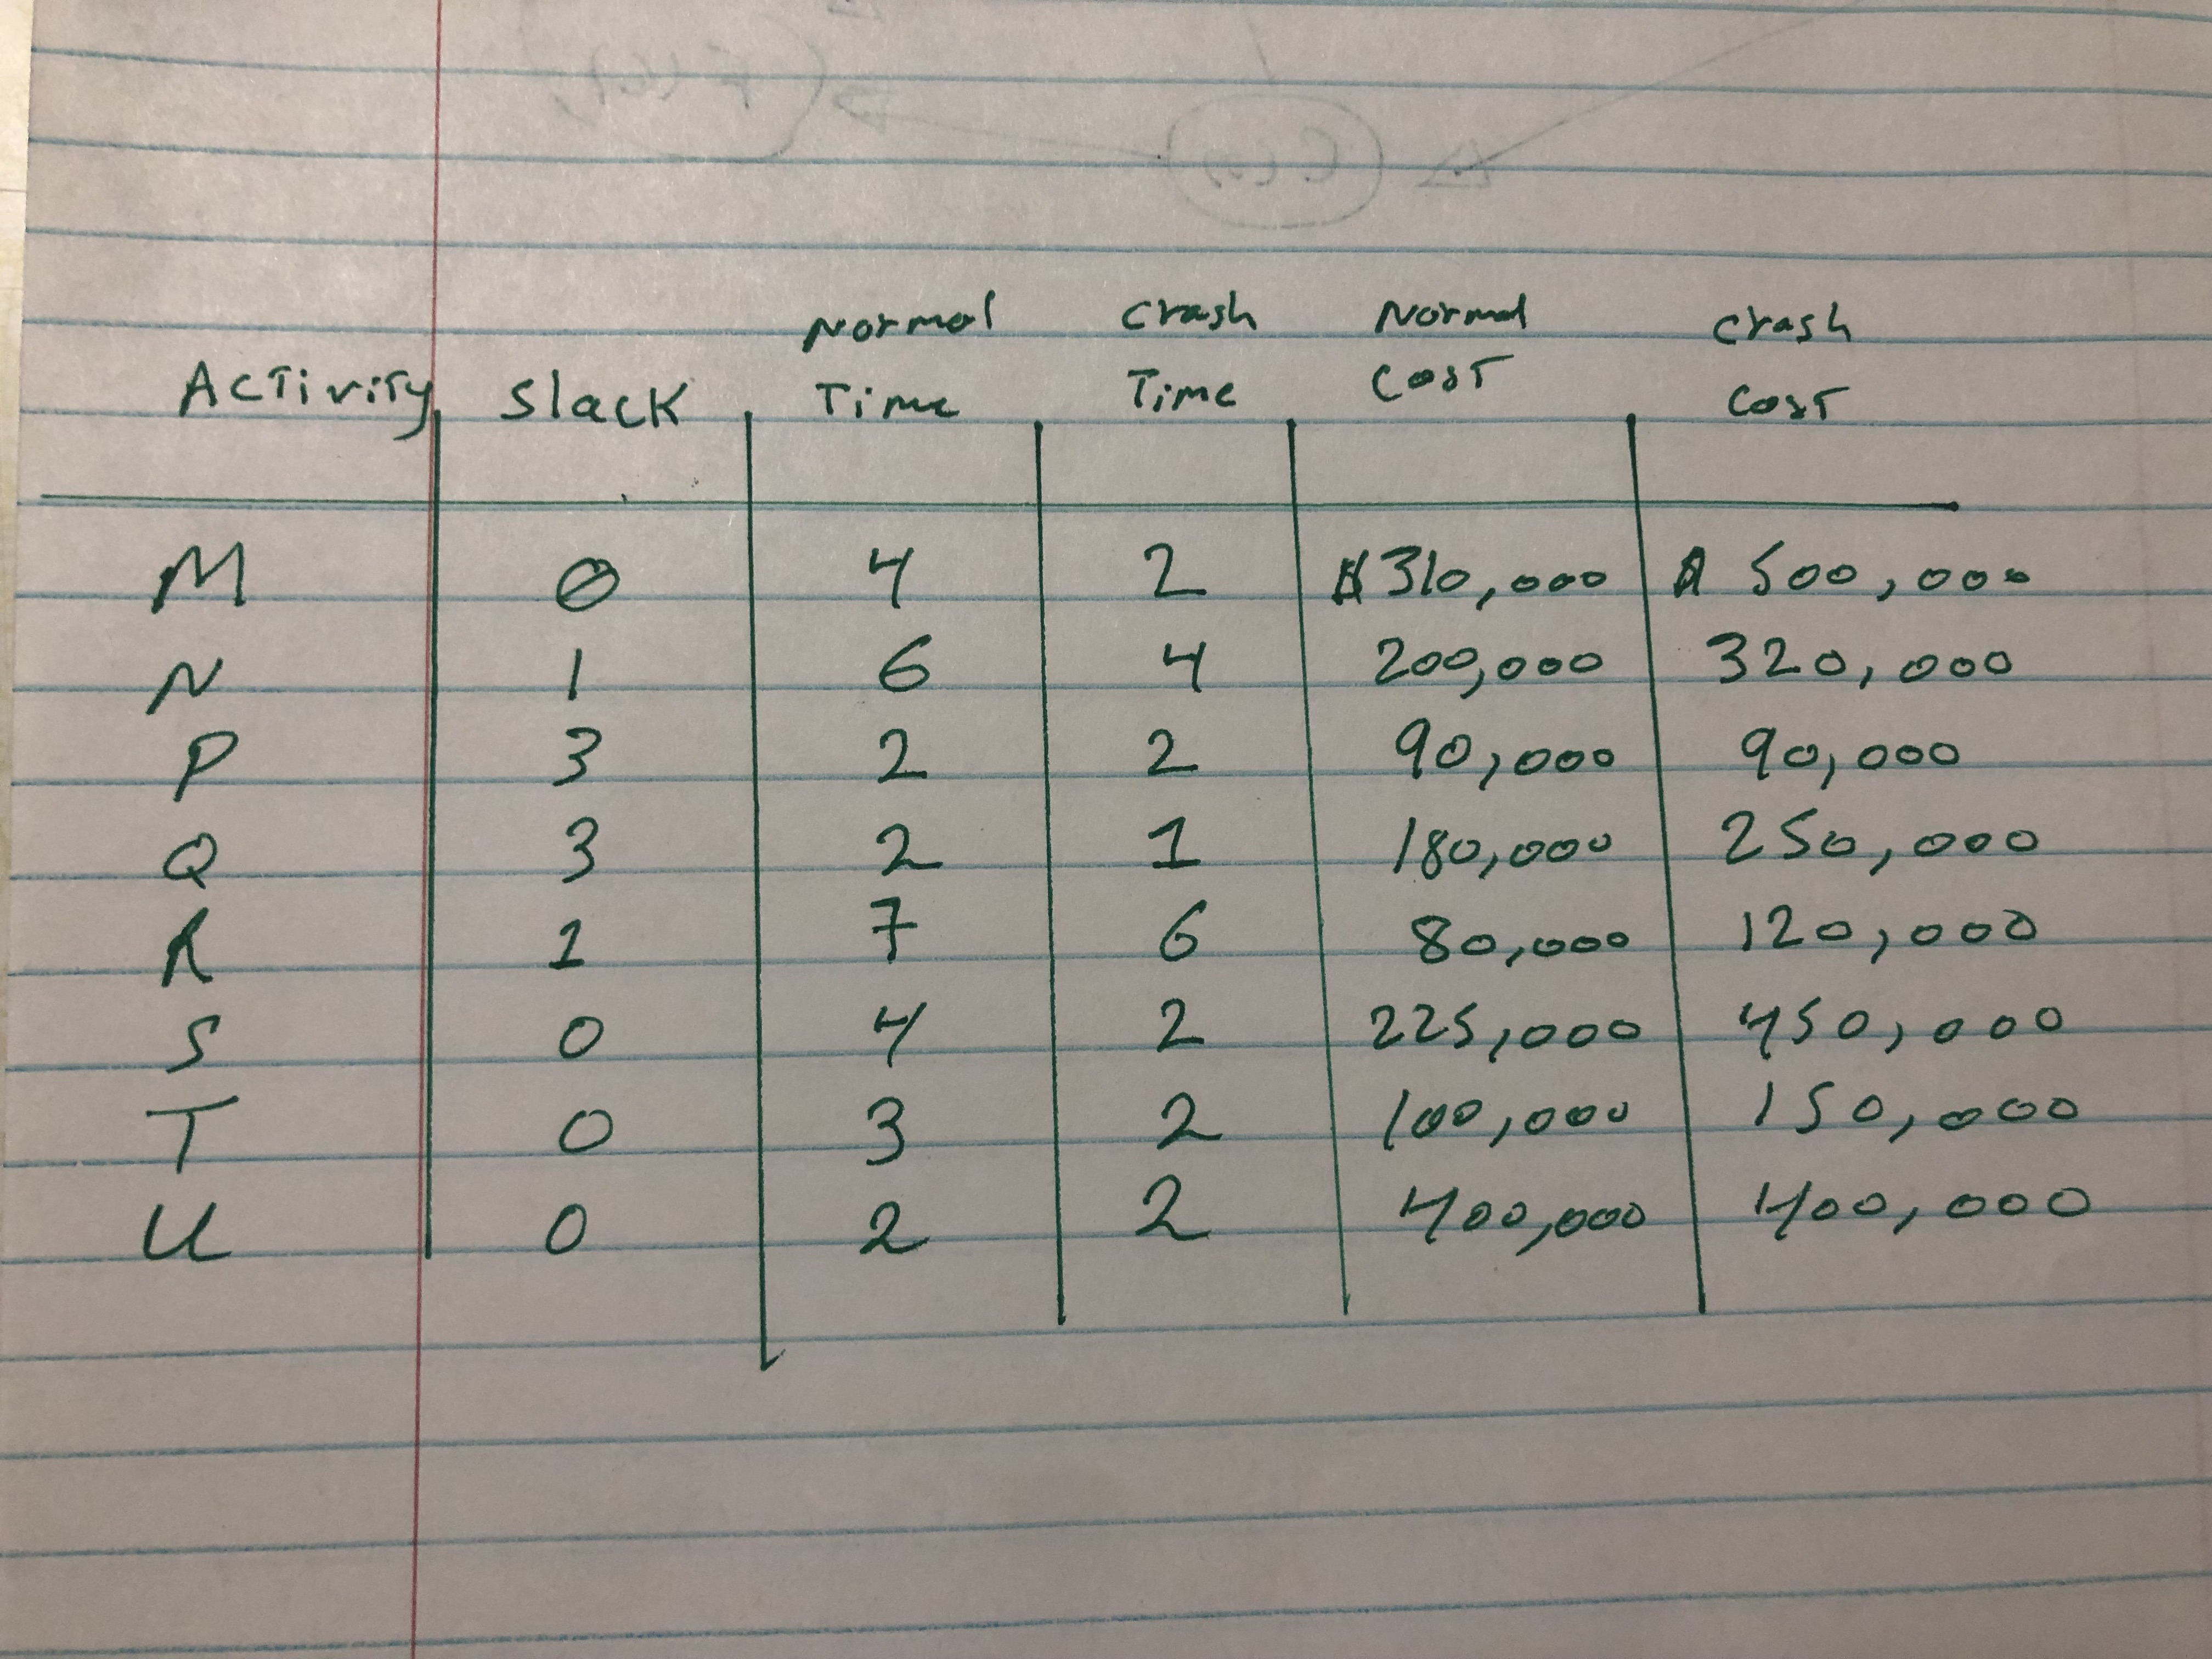 Normal Crash Normal Crash
Activity Slack Time Time Cost Cost
M 0 4 2 $310,000 $500,000
N 1 6 4 200,000 320,000
P 3 2 2 90,000 90,000
Q 3 2 1 180,000 250,000
R 1 7 6 80,000 120,000
S 0 4 2 225,000 450,000
T 0 3 2 100,000 150,000
U 0 2 2 400,000 400,000